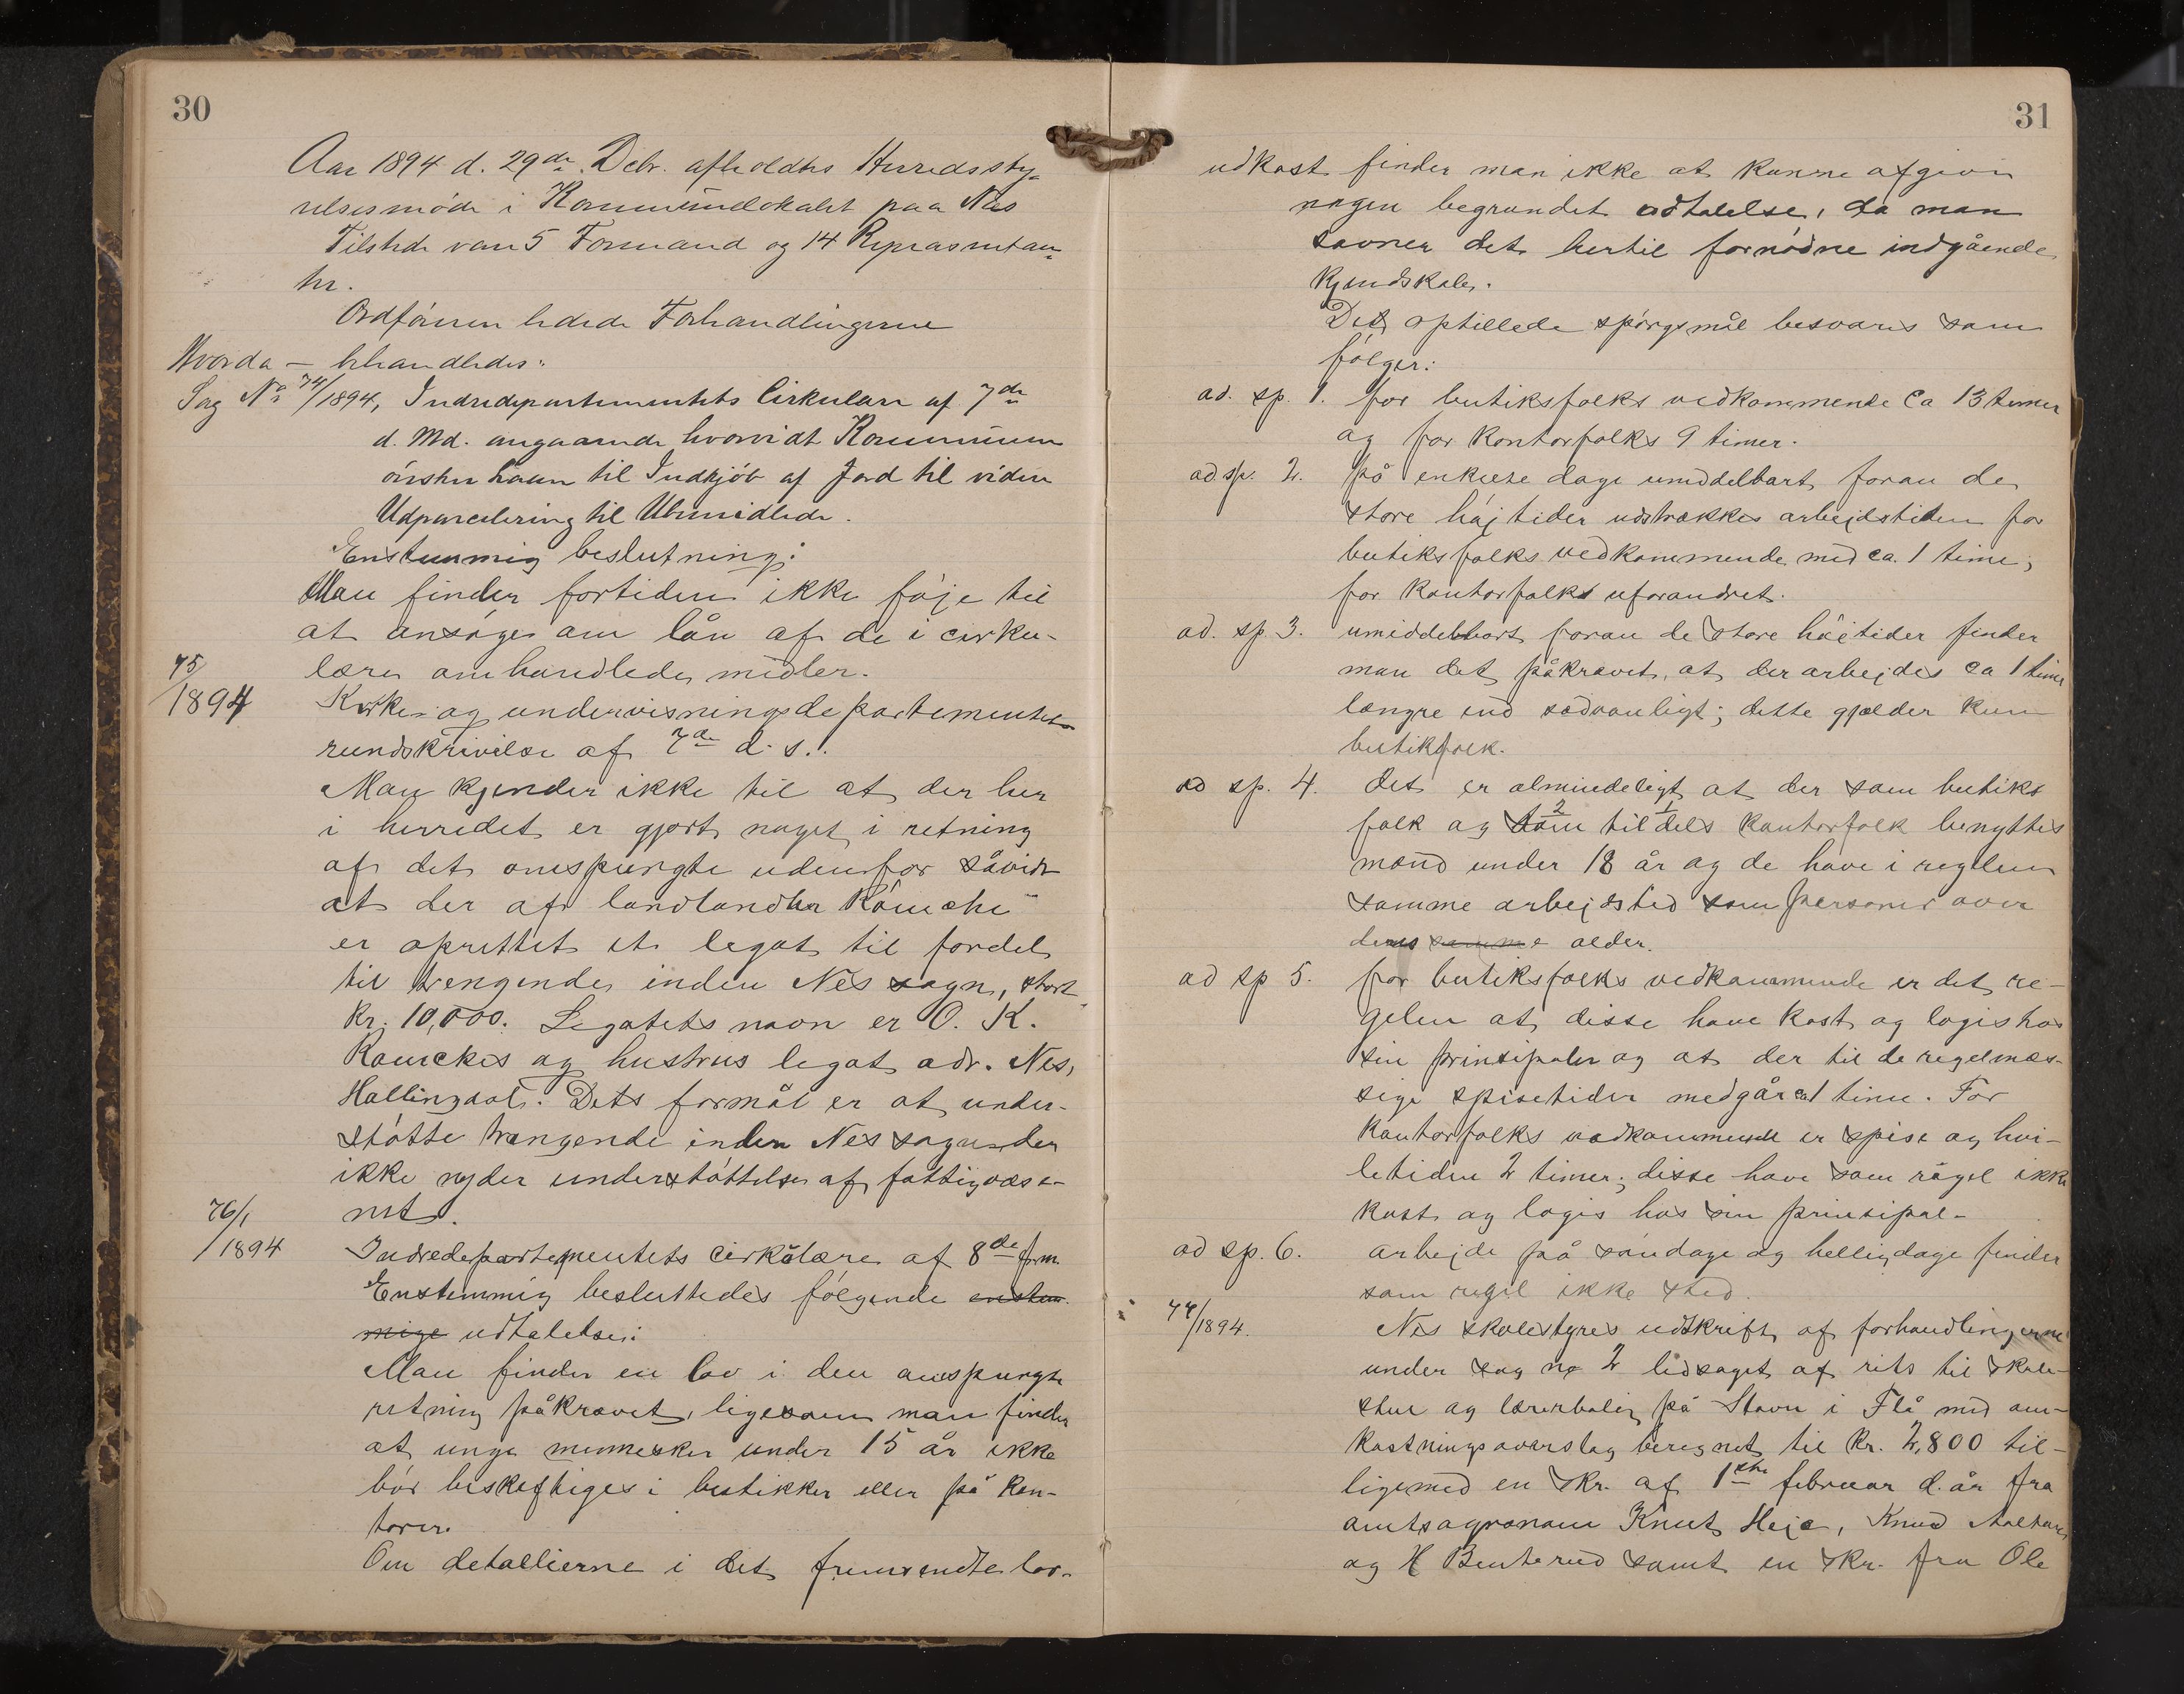 30
Aar 1894 d. 29de Debr. afholdtes Herredssty-
relsesmöde i Kommunelokalet paa Næs
Tilstede vare 5 Formænd og 14 Repræsentan-
ter.
Ordføreren ledede Forhandlingerne
Hvorda – behandledes:
Sag No 74/1894, Indredepartementets Cirkulære af 7de
d. Md. angaaende hvorvidt Kommunen
önsker Laan til Indkjöb af Jord til videre
Udparcelering til Ubemidlede.
Enstemmig beslutning:
Man finder fortiden ikke föje til
at ansöge om lån af de i cirku-
lære omhandlede midler.
75/1894
Kirke- og undervisningsdepartementets
rundskrivelse af 7de d. s..
Man kjender ikke til at der her
i herredet er gjort noget i retning
af det omspurgte udenfor såvidt
at der af landhandler Römcke
er oprettet et legat til fordel
til trengende inden Nes sogn, stort
Kr. 10,000. Legatets navn er O. K.
Römckes og hustrus legat adr. Nes,
Hallingdal. Dets formål er at under-
stötte trængende inden Nes sogn, der
ikke nyder understöttelse af fattigvæse-
net.
76/1894
Indredepartementets cirkulære af 8de f.m.
Enstemmig besluttedes fölgende enstem-
mige udtalelse:
Man finder en lov i den omspurgte
retning påkrævet, ligesom man finder
at unge mennesker under 15 år ikke
bör beskeftiges i butikker eller på kon-
torer.
Om detallierne i det fremsendte lov-
31
udkast finder man ikke at kunne afgive
nogen begrundet udtalelse, da man
savner det hertil fornödne indgående
kjendskab.
Det opstillede spörgsmål besvares som
fölger:
ad. sp. 1. for butiksfolks vedkommende ca 13 timer
og for kontorfolks 9 timer.
ad. sp. 2. på enkelte dage umiddelbart foran de
store höjtider udstrækkes arbejdstiden for
butiksfolks vedkommende med ca. 1 time,
for kontorfolks uforandret.
ad. sp. 3. umiddelbart foran de store höitider finder
man det påkrævet, at der arbejdes ca 1 time
længre end sædvanligt; dette gjælder kun
butikfolk.
ad sp. 4. det er almindeligt at der som butiks
folk og som 2 til dels 1 kontorfolk benyttes
mænd under 18 år og de have i regelen
samme arbejdstid som personer over
denne samme alder.
ad sp 5. for butiksfolks vedkommende er det re-
gelen at disse have kost og logis hos
sin prinsipaler og at der til de regelmæs-
sige spisetider medgår ca 1 time. For
kontorfolks vedkommende er spise og hvi-
letiden 2 timer; disse have som regel ikke
kost og logis hos sin prinsipal.
ad sp. 6. arbejde på söndage og helligdage finder
som regel ikke sted.
77/1894.
Nes skolestyres udskrift af forhandlingerne
under sag no 2 ledsaget af rits til skole-
stue og lærerbolig på Stavn i Flå med om-
kostningsoverslag beregnet til Kr. 2,800 til-
ligemed en skr. af 1ste februar d. år fra
amtsagronom Knut Heje, Knud
og H Benterud samt en skr. fra Ole